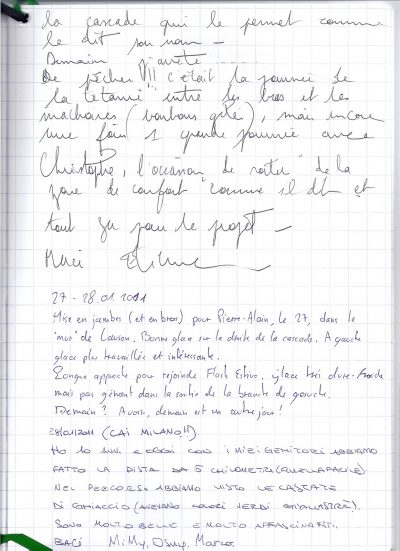 la cascade qui le permet comme
le dit son nom -
Demain j'arrête
de pêcher !!! c'était la journée de
la tétanie entre les bras et les
mâchoires (bonbons gélés), mais encore
une fois 1 grande journée avec
Christophe, l'occasion de sortir de la
zone de confort comme il dit et
tout ça pour le projet -
Merci
27-28.01.2011
Mise en jambes (et en bras) pour Pierre-Alain, le 27, dans le
"mur" de Lauson. Bonne glace sur la droite de la cascade. A gauche
glace plus travaillée et intéressante.
Longue approche pour rejoindre Flash Estivo, glace très dure-froide
mais pas gênant dans la sortie de la branche de gauche.
Demain ? A voir, demain est un autre jour !
28/01/2011 (CAI MILANO!!)
HO LO SKI E OGGI CON I MIEI GENITORI ABBIAMO
FATTO LA PISTA DA 5 CHILOMETRI (QUELLA FACILE)
NEL PERCORSO ABBIAMO VISTO LE CASCATE
DI GHIACCIO (AVEVANO COLORI VERDI
SONO MOLTO BELLE E MOLTO AFFASCINANTI.
BACI MiMy, Marco